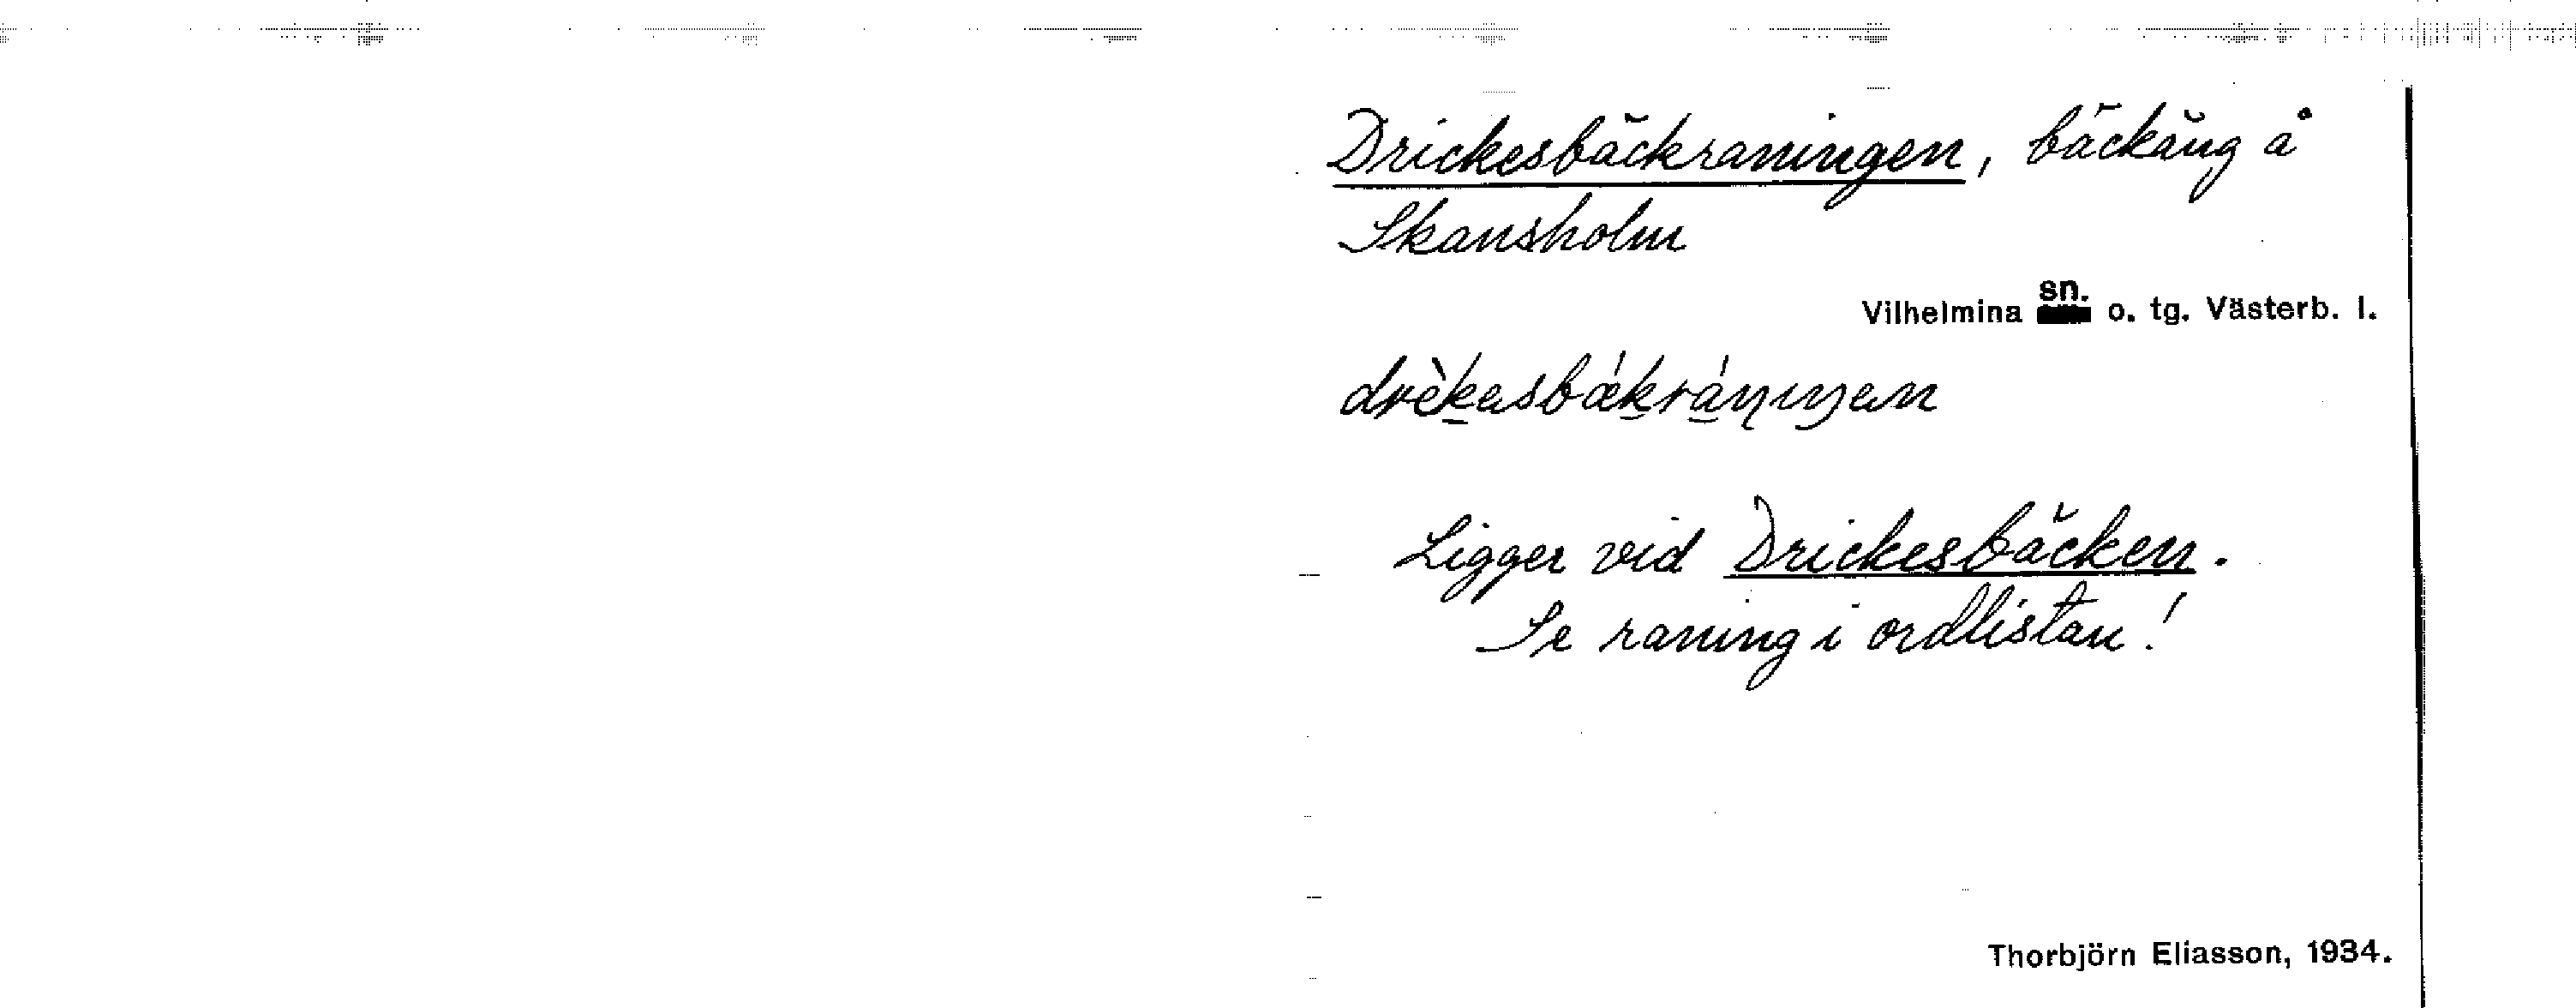 Drickesbäckraningen, bäckäng å
Skansholm
Vilhelmina sn. o. tg. Västerb. l.
drèkasbákránıŋan
Ligger vid Drickesbäcken.
Se raning i ordlistan!
Thorbjörn Eliasson, 1934.